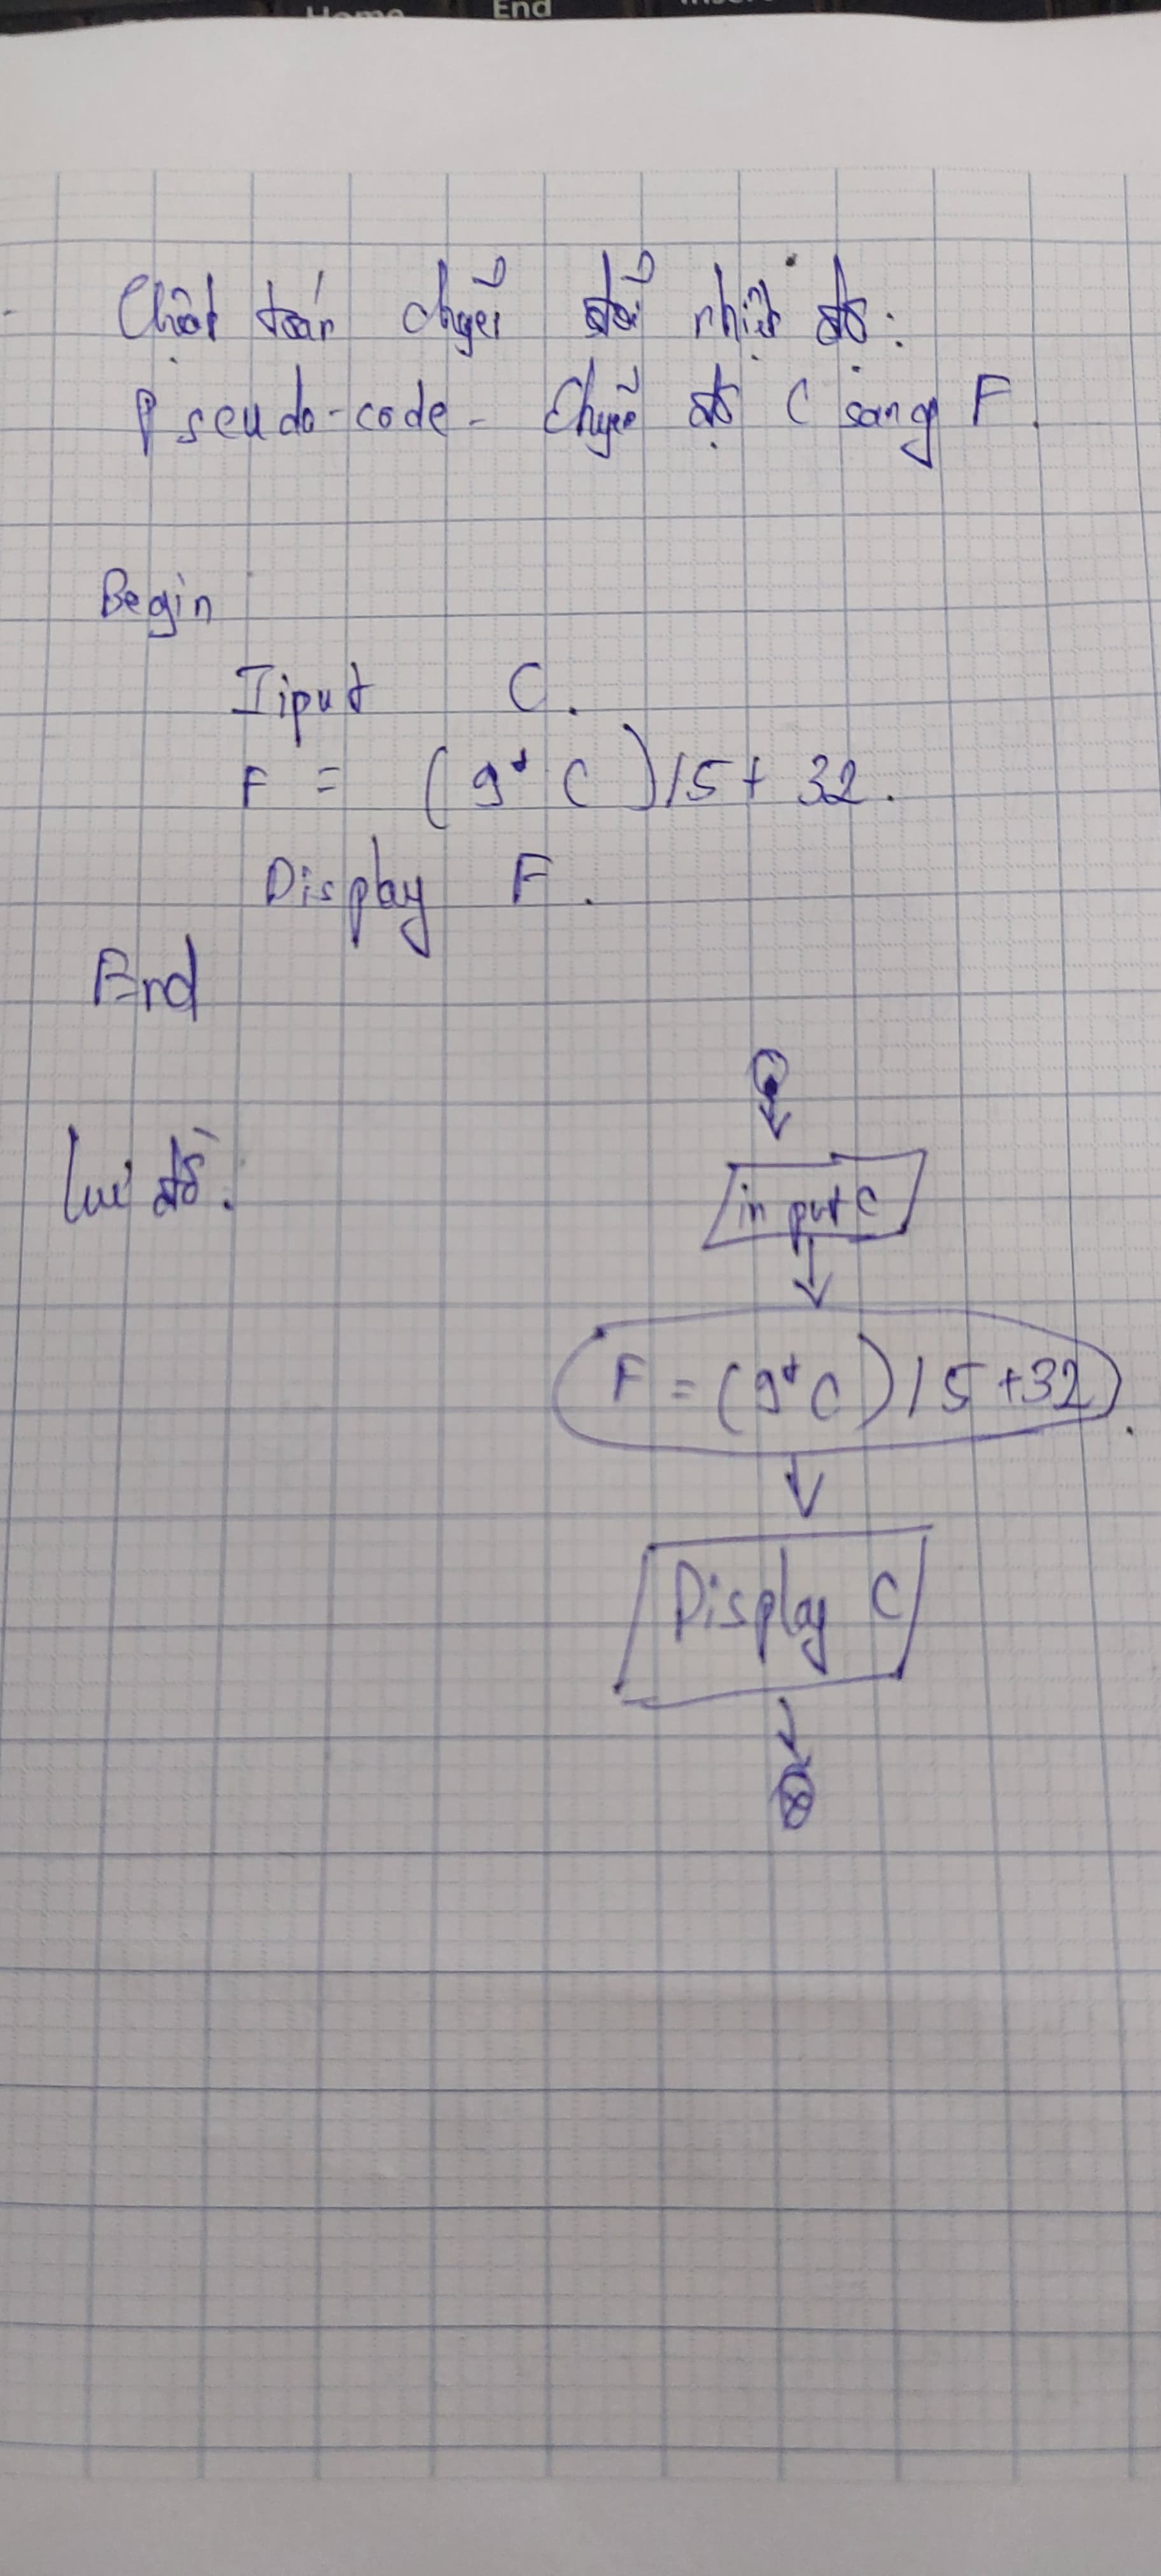 Home End Insert
- Thuật toán chuyển đổi nhiệt độ:
Pseudo-code - Chuyển độ C sang F.
Begin
Iiput C.
F = (9*C)/5+ 32.
Display F.
End
Lưu đồ:
input C
F = (9*C)/5+32
Display C